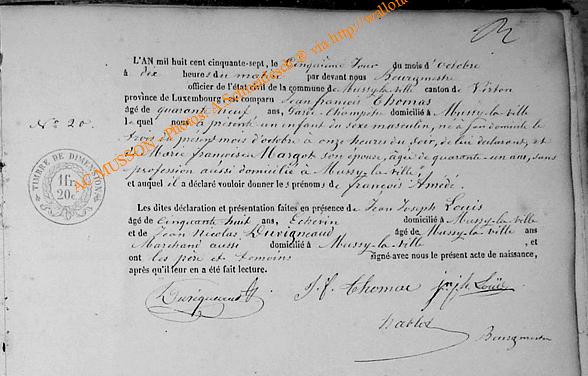 L'AN mil huit cent cinquante-sept, le Cinquième Jour du mois d'Octobre
à dix heures du matin par devant nous Bourgmestre
officier de l'état civil de la commune de Mussy-la-ville canton de Virton
province de Luxembourg est comparu Jean françois Thomas
âgé de quarante neuf ans, Garde-Champêtre domicilié à Mussy-la-ville
lequel nous a présenté un enfant du sexe masculin, né à son domicile le
trois du présent mois d'octobre à onze heures du soir, de lui déclarant, et
de Marie françoise Margot son épouse, âgée de quarante-un ans, sans
profession aussi domiciliée à Mussy-la-ville,
et auquel il a déclaré vouloir donner les prénoms de françois Amédé.
N° 20.
TIMBRE DE DIMENSION
1fr
20c
Les dites déclaration et présentation faites en présence de Jean Joseph Louis
âgé de Cinquante huit ans, Echevin domicilié à Mussy-la-ville
et de Jean Nicolas Duvigneaud âgé de Mussy-la-ville ans
Marchand aussi domicilié à Mussy-la-ville, et
ont les père et témoins signé avec nous le présent acte de naissance,
après qu'il leur en a été fait lecture.
J. f. Thomas
Bourgmestre
AC MUSSON - Photos: A. via http://wallo